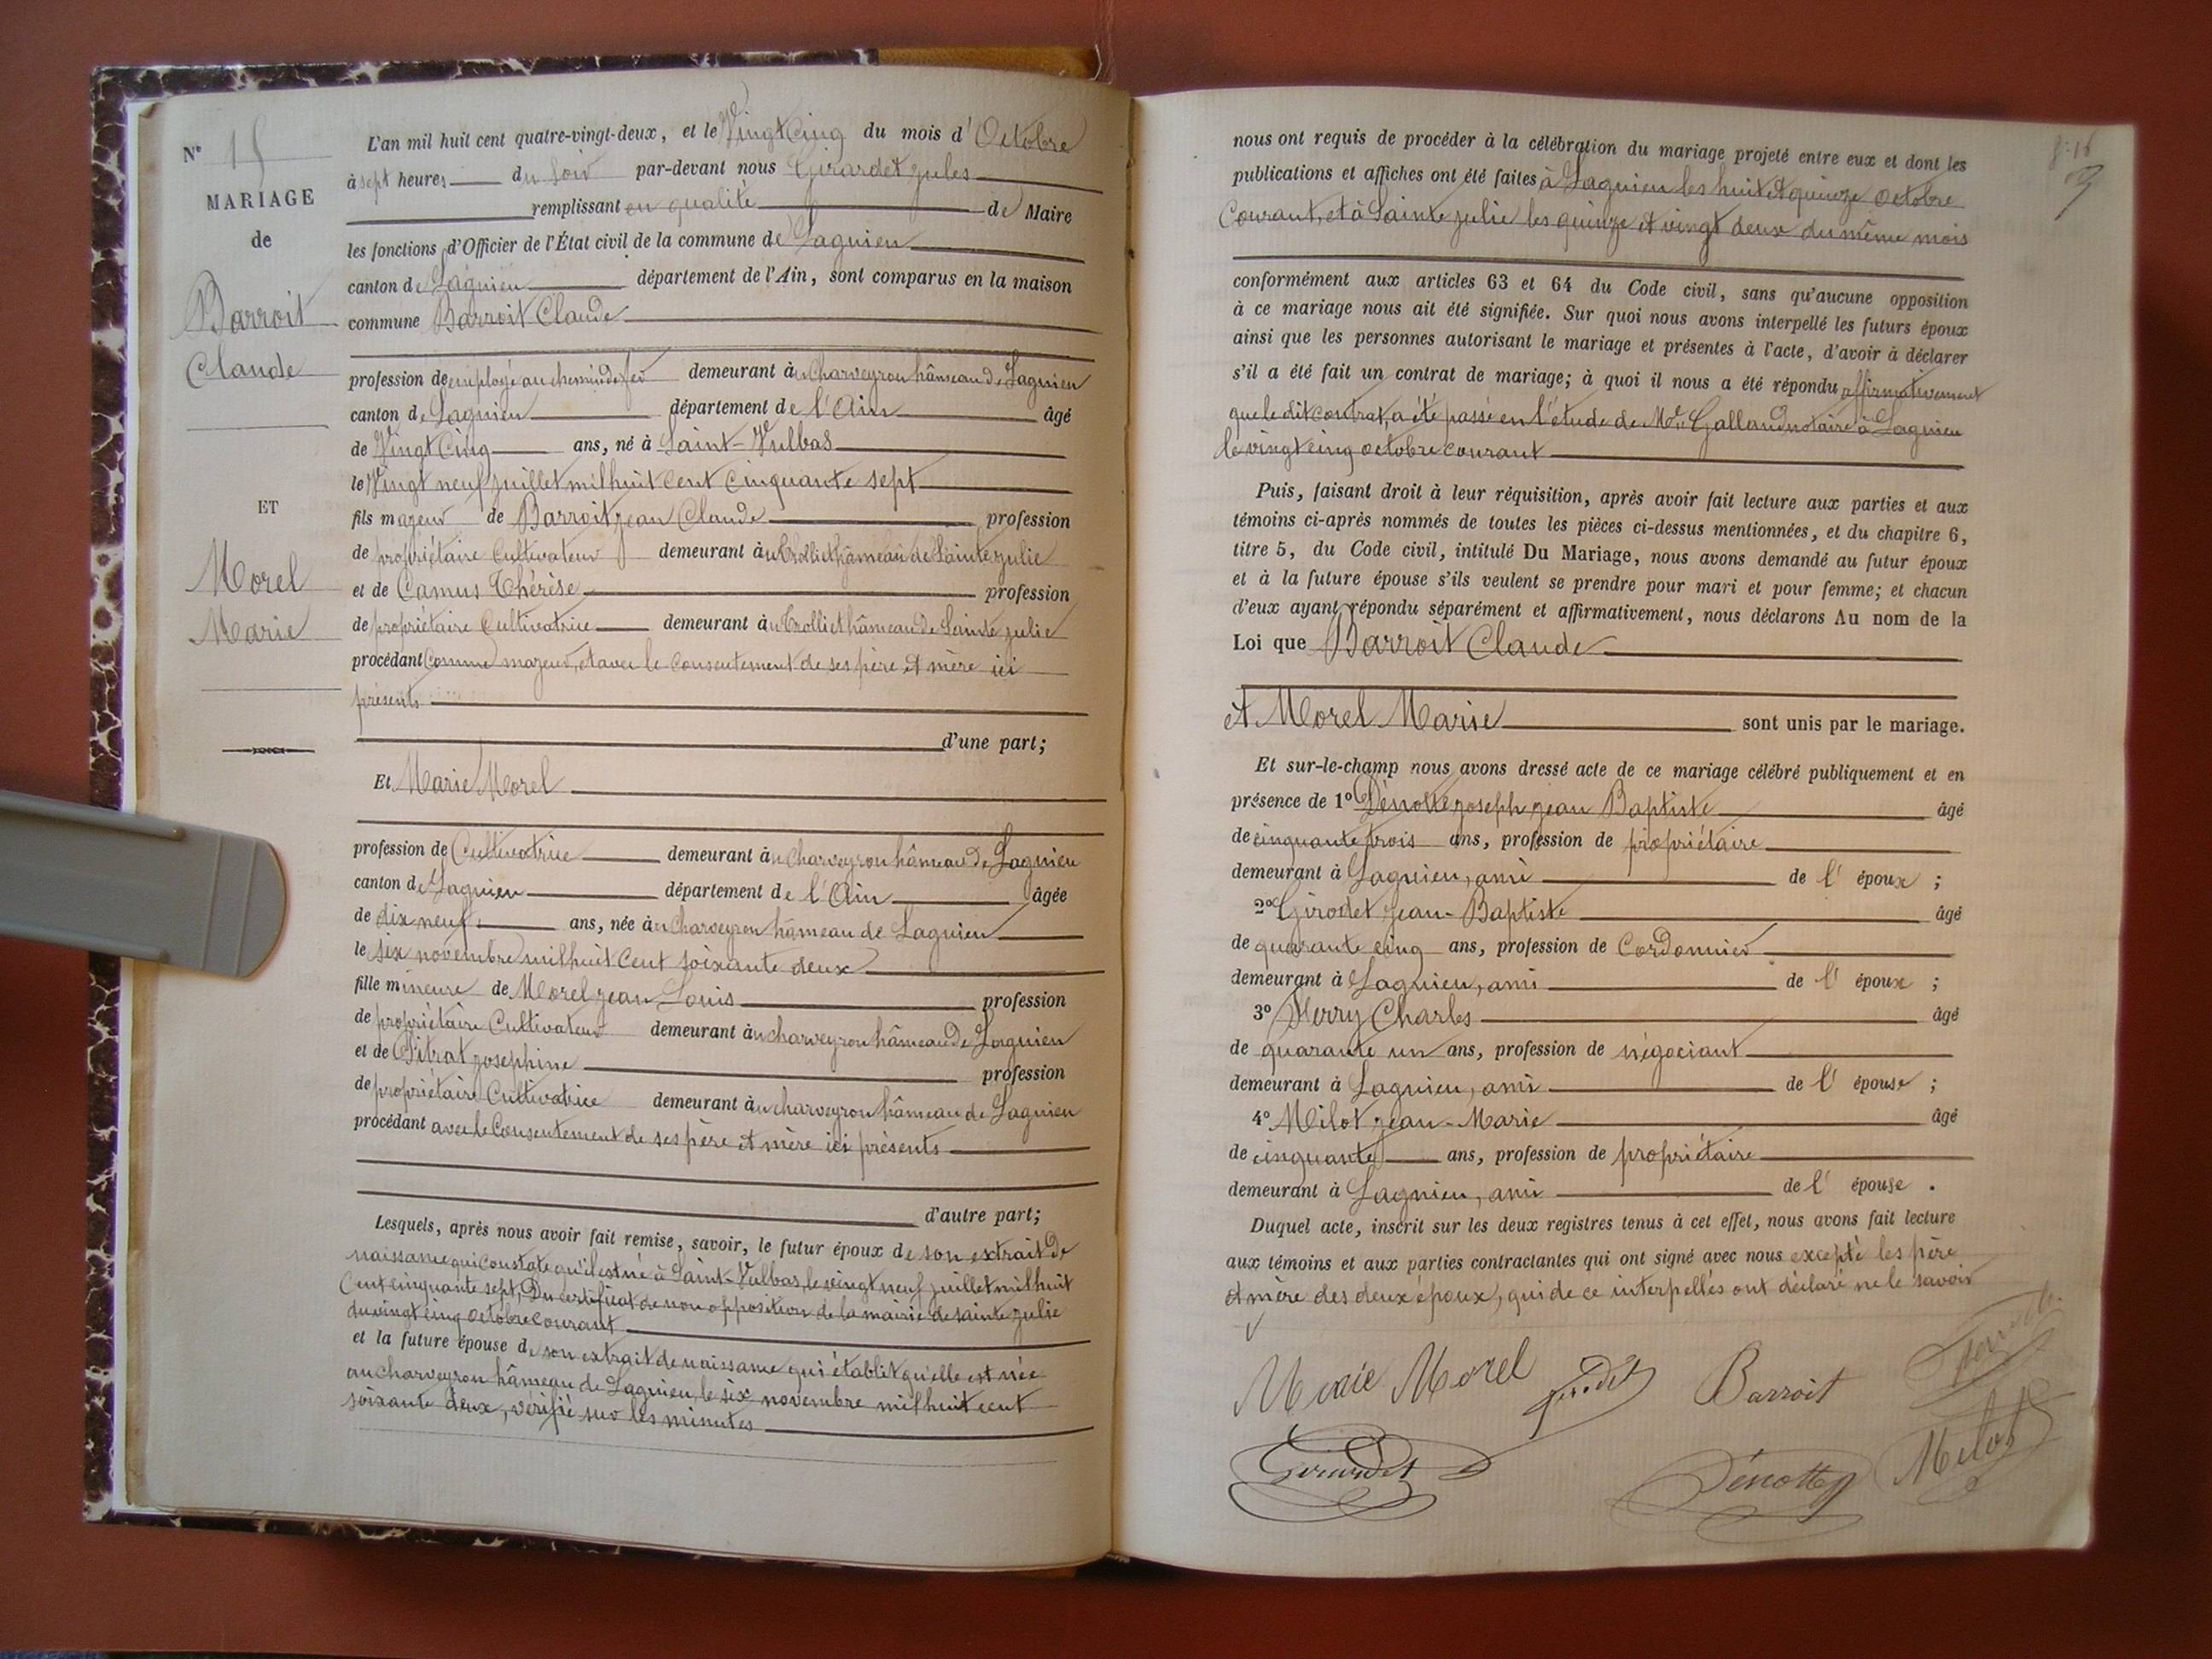 N° 15
MARIAGE
de
Barroit
Claude
ET
Morel
Marie
L'an mil huit cent quatre-vingt-deux, et le Vingt Cinq du mois d'Octobre
à sept heures du Soir par-devant nous Girardet Jules
remplissant en qualité de Maire
les fonctions d'Officier de l'État civil de la commune de Lagnieu
canton de Lagnieu département de l'Ain, sont comparus en la maison
commune Barroit Claude
profession de employé au chemin de fer demeurant à u Charveyron hâmeau de Lagnieu
canton de Lagnieu département de l'Ain âgé
de Vingt Cinq ans, né à Saint-Vulbas
le Vingt neuf juillet mil huit Cent Cinquante sept
fils majeur de Barroit Jean Claude profession
de propriétaire Cultivateur demeurant à u Trolliet hâmeau de Sainte Julie
et de Camus Thérèse profession
de propriétaire Cultivatrice demeurant à u Trolliet hâmeau de Sainte Julie
procédant Comme majeur, et avec le Consentement de ses père et mère ici
présents
d'une part;
Et Marie Morel
profession de Cultivatrice demeurant à u Charveyron hâmeau de Lagnieu
canton de Lagnieu département de l'Ain âgée
de dix neuf ans, née à u Charveyron hâmeau de Lagnieu
le six novembre mil huit Cent soixante deux
fille mineure de Morel Jean Louis profession
de propriétaire Cultivateur demeurant à u charveyron hâmeau de Lagnieu
et de Pitrat Josephine profession
de propriétaire Cultivatrice demeurant à u charveyron hâmeau de Lagnieu
procédant avec le Consentement de ses père et mère ici présents
d'autre part;
Lesquels, après nous avoir fait remise, savoir, le futur époux de son extrait de
naissance qui Constate qu'il est né à Saint-Vulbas, le vingt neuf juillet mil huit
Cent cinquante sept, Du certificat de non opposition de la mairie de sainte Julie
du vingt cinq octobre courant
et la future épouse de son extrait de naissance qui établit qu'elle est née
au charveyron hâmeau de Lagnieu, le six novembre mil huit cent
soixante deux, vérifié sur les minutes
nous ont requis de procéder à la célébration du mariage projeté entre eux et dont les
publications et affiches ont été faites à Lagnieu les huit et quinze octobre
Courant, et à Sainte Julie les quinze et vingt deux du même mois
conformément aux articles 63 et 64 du Code civil, sans qu'aucune opposition
à ce mariage nous ait été signifiée. Sur quoi nous avons interpellé les futurs époux
ainsi que les personnes autorisant le mariage et présentes à l'acte, d'avoir à déclarer
s'il a été fait un contrat de mariage; à quoi il nous a été répondu affirmativement
que le dit contrat, a été passé en l'étude de Me Galland notaire à Lagnieu
le vingt cinq octobre courant
Puis, faisant droit à leur réquisition, après avoir fait lecture aux parties et aux
témoins ci-après nommés de toutes les pièces ci-dessus mentionnées, et du chapitre 6,
titre 5, du Code civil, intitulé Du Mariage, nous avons demandé au futur époux
et à la future épouse s'ils veulent se prendre pour mari et pour femme; et chacun
d'eux ayant répondu séparément et affirmativement, nous déclarons Au nom de la
Loi que Barroit Claude
et Morel Marie sont unis par le mariage.
Et sur-le-champ nous avons dressé acte de ce mariage célébré publiquement et en
présence de 1° Dénotte Joseph Jean Baptiste âgé
de cinquante trois ans, profession de propriétaire
demeurant à Lagnieu, ami de l' époux ;
2° Girodet Jean-Baptiste âgé
de quarante cinq ans, profession de Cordonnier
demeurant à Lagnieu, ami de l' époux ;
3° Charles âgé
de quarante un ans, profession de négociant
demeurant à Lagnieu, ami de l' épouse ;
4° Milot Jean-Marie âgé
de cinquante ans, profession de propriétaire
demeurant à Lagnieu, ami de l' épouse .
Duquel acte, inscrit sur les deux registres tenus à cet effet, nous avons fait lecture
aux témoins et aux parties contractantes qui ont signé avec nous excepté les père
et mère des deux époux, qui de ce interpellés ont déclaré ne le savoir
Marie Morel Girodet Barroit
Girardet Dénotte Milot